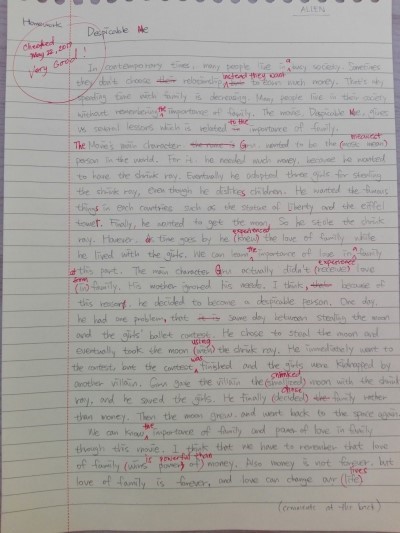 ALIEN
Homework
Despicable Me
Checked
May 22, 2017
Very Good!
In contemporary times, many people live in a busy society. Sometimes
instead they want
they don't choose their relationship to earn much money. That's why
spending time with family is decreasing. Many people live in their society
without remembering the importance of family. The movie, Despicable Me, gives
us several lessons which is related to the importance of family.
meanest
The Movie's main character is Gru wanted to be the (most mean)
person in the world. For it, he needed much money, because he wanted
to have the shrink ray. Eventually he adopted three girls for stealing
the shrink ray, even though he dislikes children. He wanted the famous
things in each countries such as the statue of Liberty and the eiffel
tower. Finally, he wanted to get the moon, So he stole the shrink
experienced
ray. However, as time goes by he (knew) the love of family while
he lived with the girls. We can learn the importance of love in a family
experience
at this part. The main character Gru actually didn't (receive) love
from
(in) family. His mother ignored his needs. I think, because of
this reason, he decided to become a despicable person. One day,
he had one problem, that same day between stealing the moon
and the girls' ballet contest. He chose to steal the moon and
using
eventually took the moon (with) the shrink ray. He immediately went to
was
the contest, but the contest finished and the girls were kidnapped by
shrinked
another villain. Gru gave the villain the (smallized) moon with the shrink
chose
ray, and he saved the girls. He finally (decided) family rather
than money. Then the moon grew and went back to the space again.
We can know the importance of family and power of love in family
though this movie. I think that we have to remember that love
is powerful than
of family (wins power of) money. Also money is not forever, but
lives
love of family is forever, and love can change our (life)
(comments at the back)